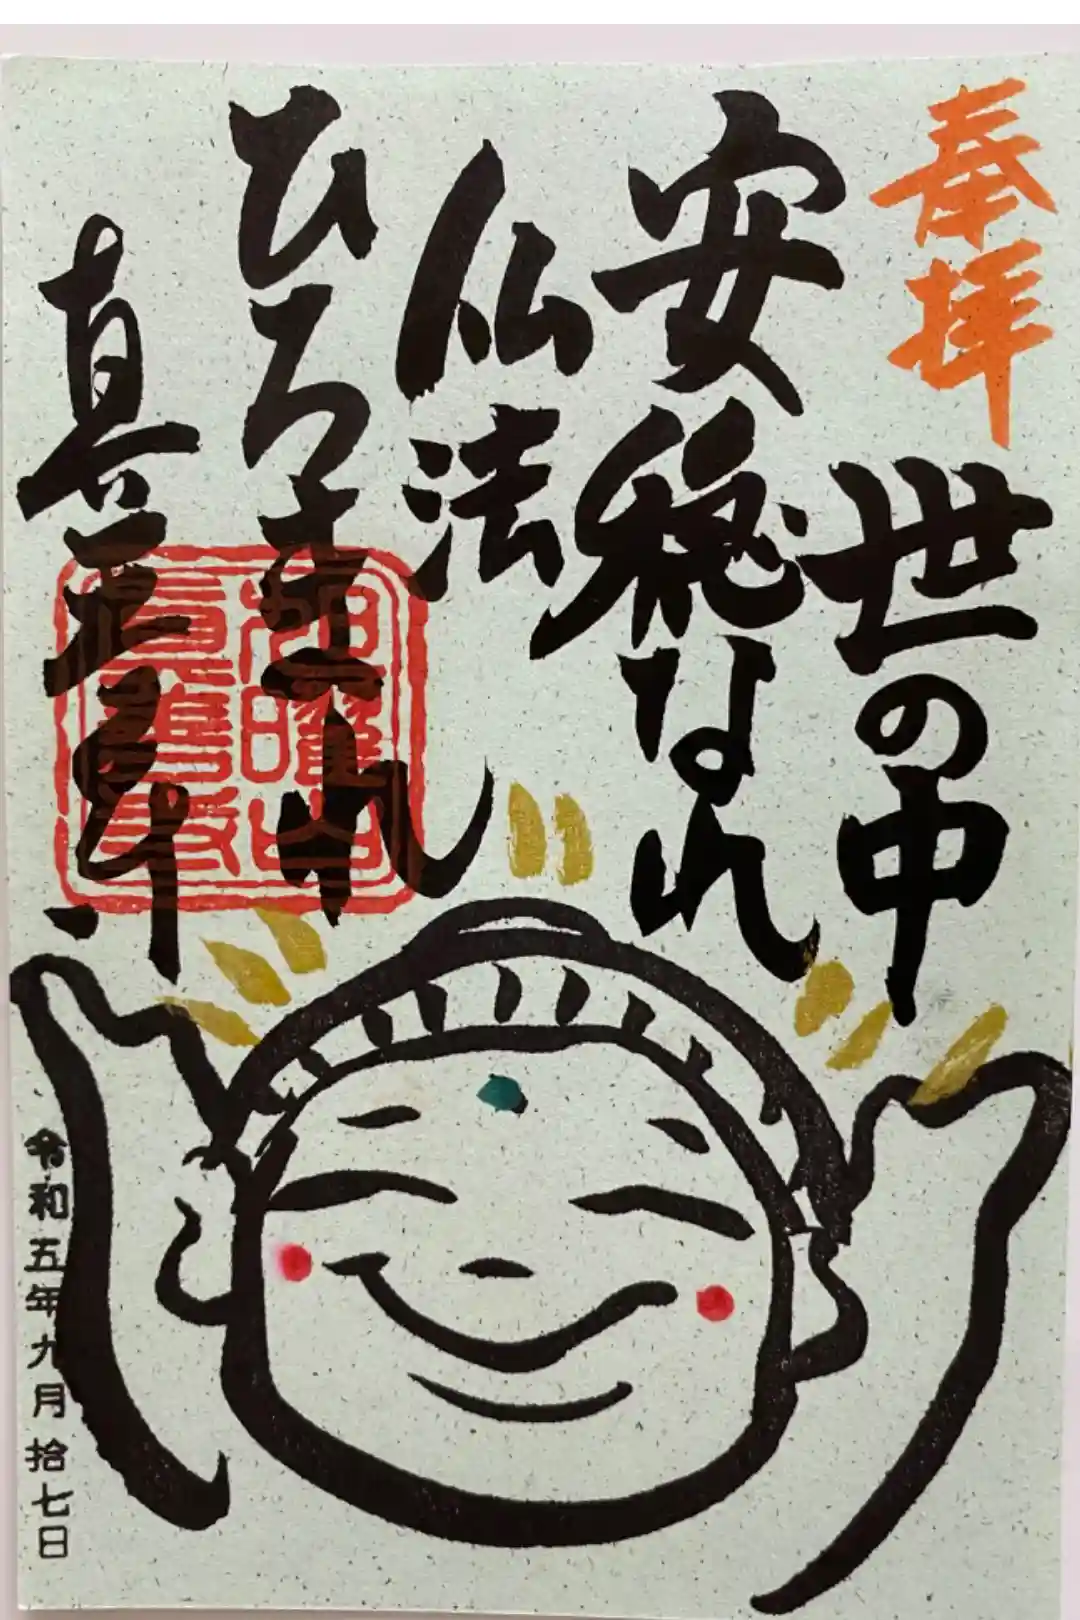 奉拝
世の中
安穏なれ
仏法
ひろまれ
真
令和五年九月拾七日